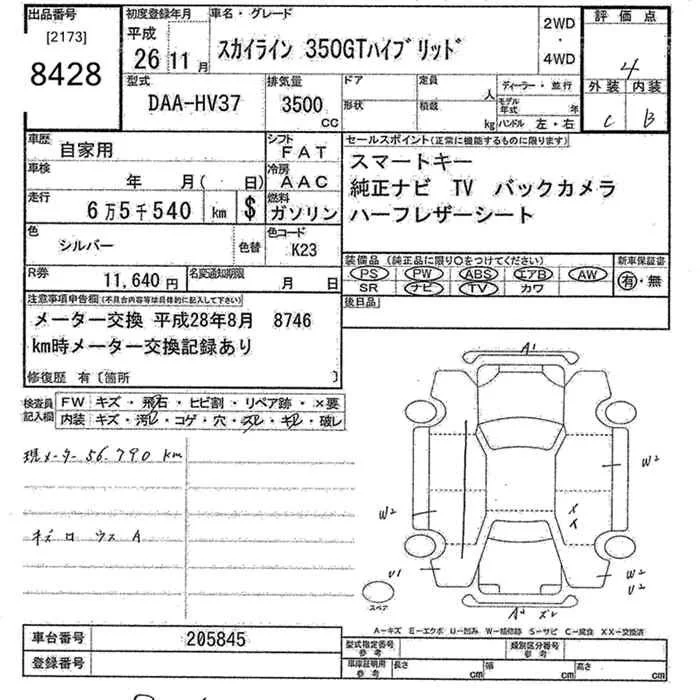 出品番号
[2173]
8428
初度登録年月
平成
26 11 月
車名・グレード
スカイライン 350GTハイブリッド
2WD
・
4WD
評価点
4
外装 内装
C B
型式
DAA-HV37
排気量
3500
CC
ドア
定員
人
形状
積載
kg
ディーラー・並行
モデル年式 年
ハンドル 左・右
車歴
自家用
シフト
FAT
車検
年 月( 日)
冷房
AAC
走行
6万5千540 km $
燃料
ガソリン
色
シルバー
色替
色コード
K23
R券
11,640 円
名変通知期限
月 日
セールスポイント(正常に機能するものに限ります)
スマートキー
純正ナビ TV バックカメラ
ハーフレザーシート
装備品(純正品に限り○をつけてください)
PS PW ABS エアB AW
SR ナビ TV カワ
新車保証書
有・無
後日品
注意事項申告欄(不具合内容等は具体的に記入して下さい)
メーター交換 平成28年8月 8746
km時メーター交換記録あり
修復歴 有〔箇所 〕
検査員記入欄
FW キズ・飛石・ヒビ割・リペア跡・×要
内装 キズ・汚レ・コゲ・穴・スレ・キレ・破レ
現メーター 56,790 km
A1
W2
W2
U1
W2
U2
A2 スレ
スペア
A－キズ E－エクボ U－凹み W－補修跡 S－サビ C－腐食 XX－交換済
車台番号
205845
登録番号
型式指定番号
参考
類別区分番号
参考
車庫証明用
参考
長さ cm 幅 cm 高さ cm